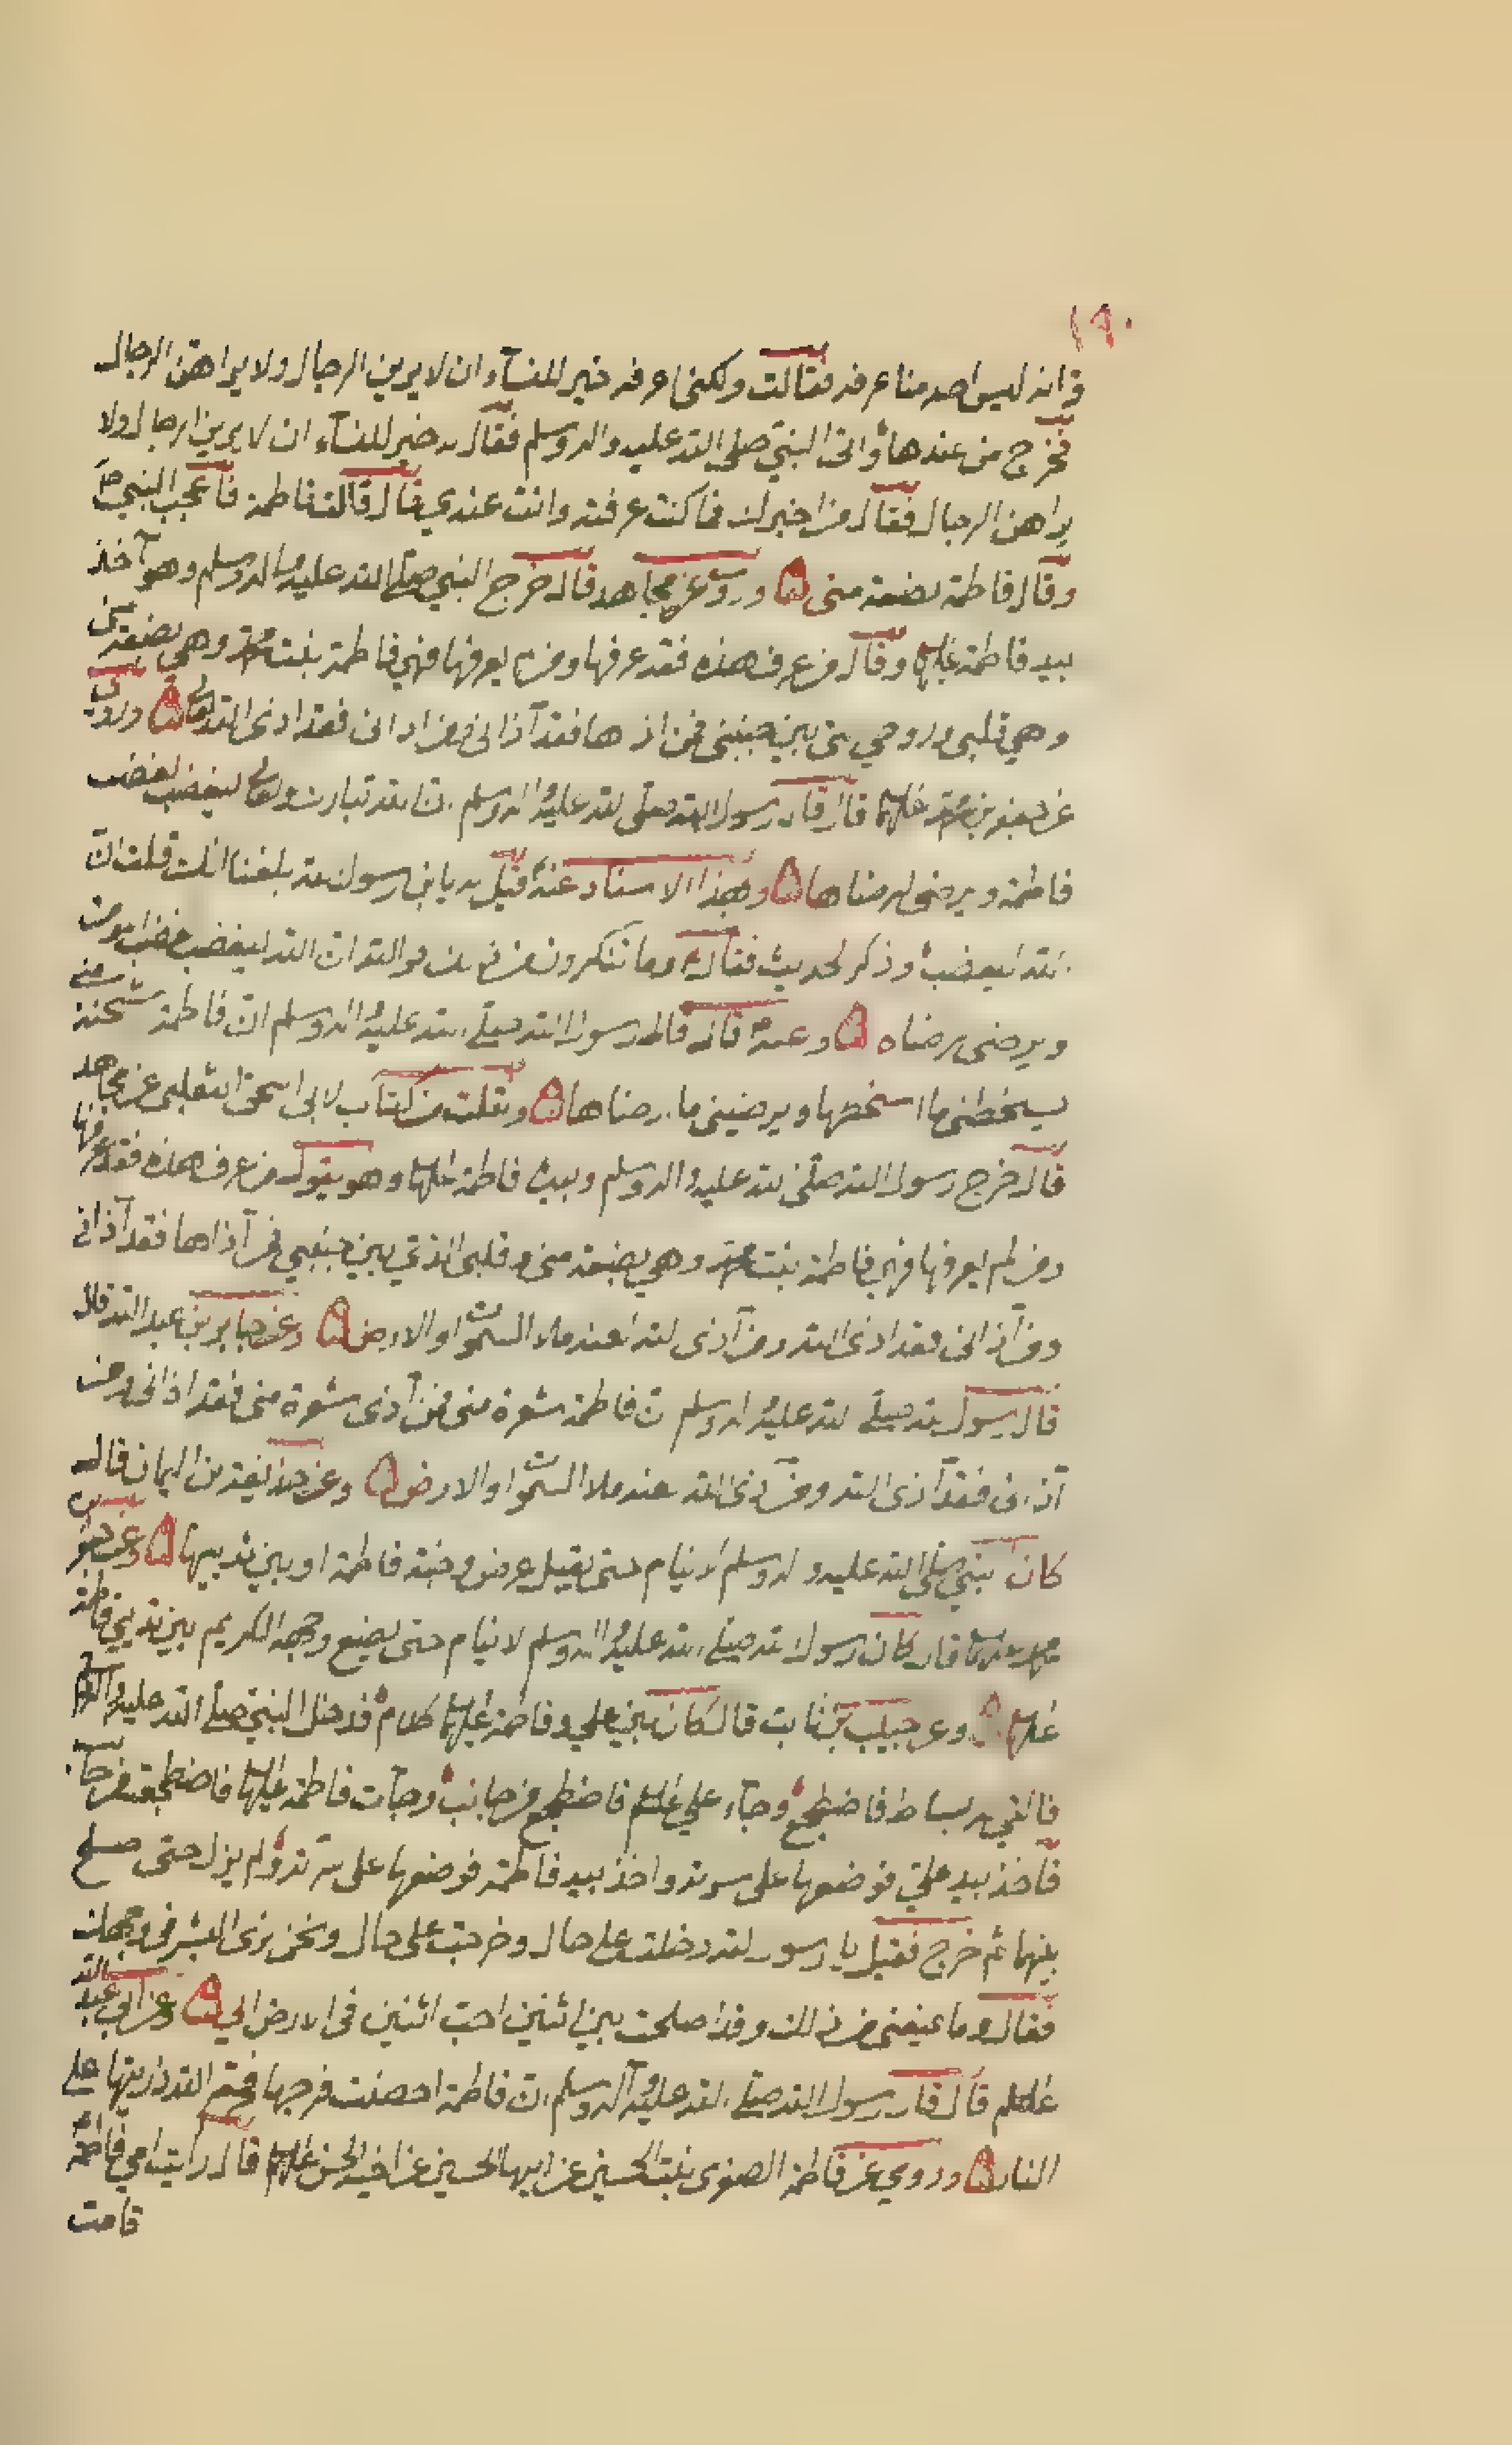 ١٩٠
وانه ليس احد منا عرفه فقالت ولكني اعرفه خير للنسآء ان لا يرين الرجال ولا يراهن الرجال
فخرج من عندها واتى النبي صلى الله عليه واله وسلم فقال له خير للنسآء ان لا يرين الرجال ولا
يراهن الرجال فقال من اخبرك فما كنت عرفته وانت عندي قال قالته فاطمة فاعجب النبي ص
وقال فاطمة بضعة مني ۞ وروي عن مجاهد قال خرج النبي صلى الله عليه واله وسلم وهو آخذ
بيد فاطمة عليها وقال من عرف هذه فقد عرفها ومن لم يعرفها فهي فاطمة بنت محمد وهي بضعة مني
وهي قلبي وروحي التي بين جنبيي فمن اذاها فقد آذاني ومن اذاني فقد اذى الله تعالى ۞ وروي
عن جعفر بن محمد عليهما قال قال رسول الله صلى الله عليه واله وسلم ان الله تبارك وتعالى ليغضب لغضب
فاطمة ويرضى لرضاها ۞ وبهذا الاسناد عنه قيل له يا بن رسول الله بلغنا انك قلت ان
الله ليغضب وذكر الحديث فقال وما تنكرون من ذلك فوالله ان الله ليغضب لغضب المؤمن
ويرضى لرضاه ۞ وعنه قال قال رسول الله صلى الله عليه واله وسلم ان فاطمة شجنة مني
يسخطني ما اسخطها ويرضيني ما ارضاها ۞ ونقلت من كتاب لابي اسحق الثعلبي عن مجاهد
قال خرج رسول الله صلى الله عليه واله وسلم وبيده فاطمة عليها وهو يقول من عرف هذه فقد عرفها
ومن لم يعرفها فهي فاطمة بنت محمد وهي بضعة مني وقلبي الذي بين جنبيي فمن آذاها فقد آذاني
ومن آذاني فقد اذى الله ومن آذى الله لعنه ملأ السموات والارض ۞ وعن جابر بن عبد الله قال
قال رسول الله صلى الله عليه واله وسلم ان فاطمة شعرة مني فمن آذى شعرة مني فقد اذاني ومن
آذاني فقد آذى الله ومن آذى الله لعنه ملأ السموات والارض ۞ وعن حذيفة بن اليمان قال
كان النبي صلى الله عليه واله وسلم لا ينام حتى يقبل عرض وجنة فاطمة او بين ثدييها ۞ وعن جعفر بن
محمد عليهما قال كان رسول الله صلى الله عليه واله وسلم لا ينام حتى يضع وجهه الكريم بين ثديي فاطمة
عليها ۞ وعن حبيب بن ثابت قال كان بين علي وفاطمة عليهما كلام فدخل النبي صلى الله عليه واله وسلم
فالقي له بساط فاضطجع وجآء علي عليه السلم فاضطجع من جانب وجآت فاطمة عليها فاضطجعت من جانب
فاخذ بيد علي فوضعها على سرته واخذ بيد فاطمة فوضعها على سرته ولم يزل حتى اصلح
بينهما ثم خرج فقيل يا رسول الله دخلت على حال وخرجت على حال ونحن نرى البشر في وجهك
فقال وما يمنعني من ذلك وقد اصلحت بين اثنين احب اثنين في الارض الي ۞ وعن ابي عبد الله
عليه السلم قال قال رسول الله صلى الله عليه وآله وسلم ان فاطمة احصنت فرجها فحرم الله ذريتها على
النار ۞ وروي عن فاطمة الصغرى بنت الحسين عن ابيها الحسين عن اخيه الحسن عليهم قال رايت امي فاطمة
قامت